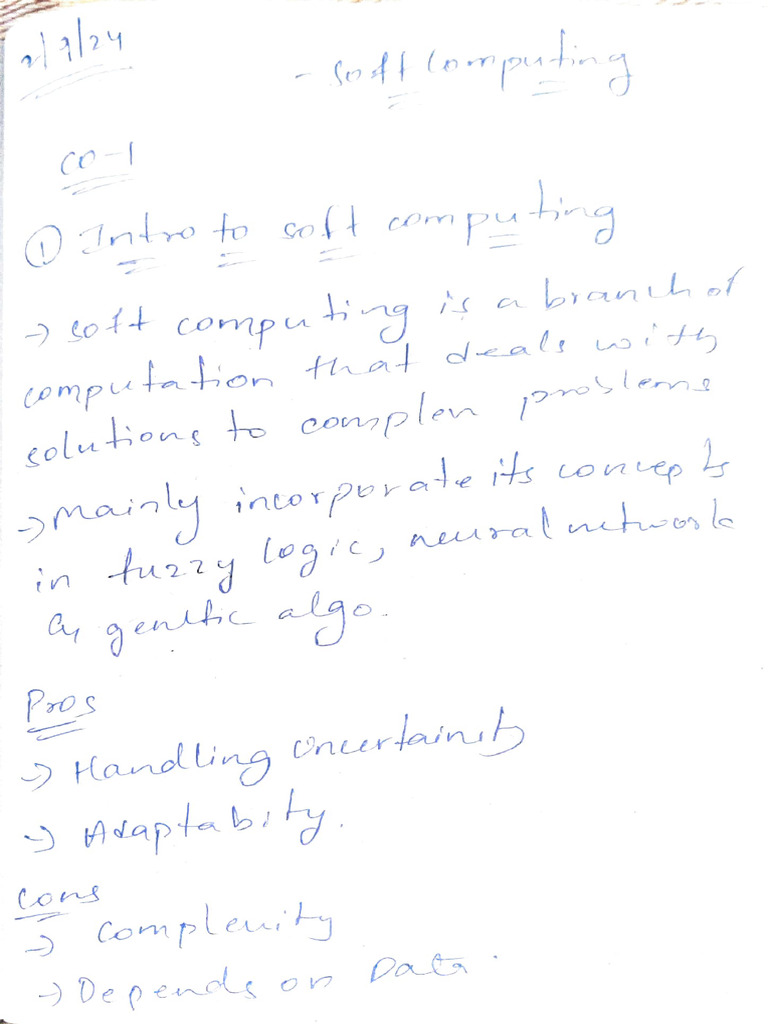 2/7/24
- Soft Computing
CO-1
① Intro to soft computing
→ soft computing is a branch of
computation that deals with
solutions to complex problems
→ Mainly incorporate its concepts
in fuzzy logic, neural network
& genetic algo.
Pros
→ Handling Uncertainity
→ Adaptabity.
Cons
→ Complexity
→ Depends on Data.